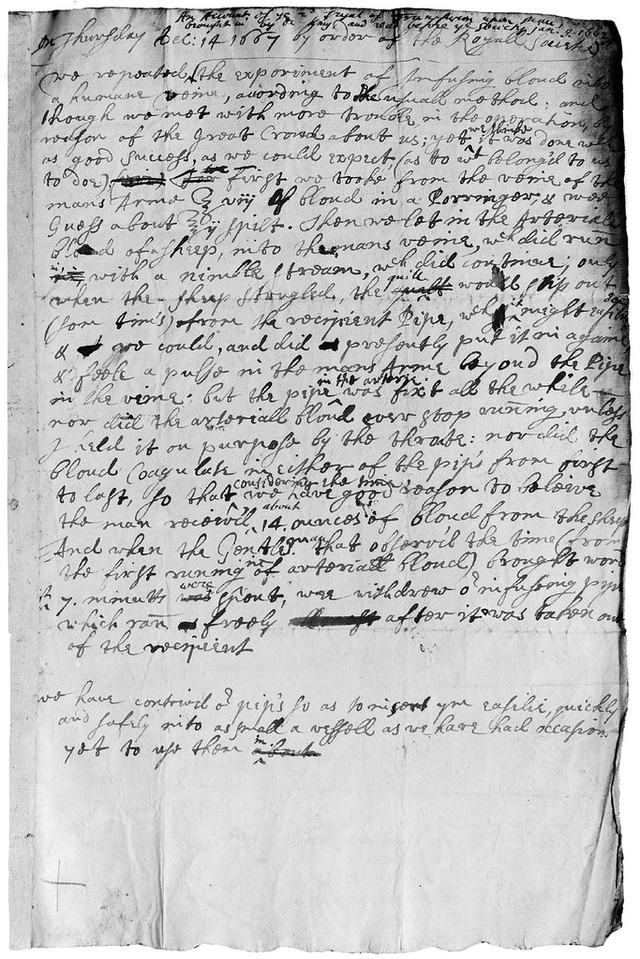 An Account of ye 2d tryal of Transfusion upon man
brought in by Dr King, and read before ye Society Jan. 9. 1667
On Thursday Dec: 14 1667 by order of the Royall Societie
we repeated the experiment of Infusing bloud into
a humane veine, acording to the usuall method: and
though we met with more trouble in the operation, by
reason of the Great Croud about us; yet we thinke it was done with
as good success, as we could expect, (as to wt belong'd to us
to doe), first we tooke from the veine of the
mans Arme ℥ viij of bloud in a Porringer & wee
Guess about ℥ ij spilt. Then we let in the Arteriall
bloud of sheep, into the mans veine, wch did run
in with a nimble stream, wch did continue; only
when the sheep strugled, the quill would slip out
(som tim's) from the recipient Pipe, wch might easily
& we could, and did presently put it in againe
& feele a pulse in the mans Arme beyond the Pipe
in the veine: but the pipe in the arterie was fixt all the while
nor did the arteriall bloud ever stop runing, unless
I held it on purpose by the throte: nor did the
bloud Coagulate in either of the pip's from first
to last, so that considering the time we have good reason to beleive
the man receiv'd about 14 ounces of bloud from the sheep
And when the Gentleman that observ'd the time (from
the first runing in of arteriall bloud) brought word
7. minuts were spent, wee withdrew or infusing pipe
which ran freely after it was taken out
of the recipient
we have contriv'd or pip's so as to insert ym easilie, quickly
and safely into as small a vessell as we have had occasion
yet to use them in